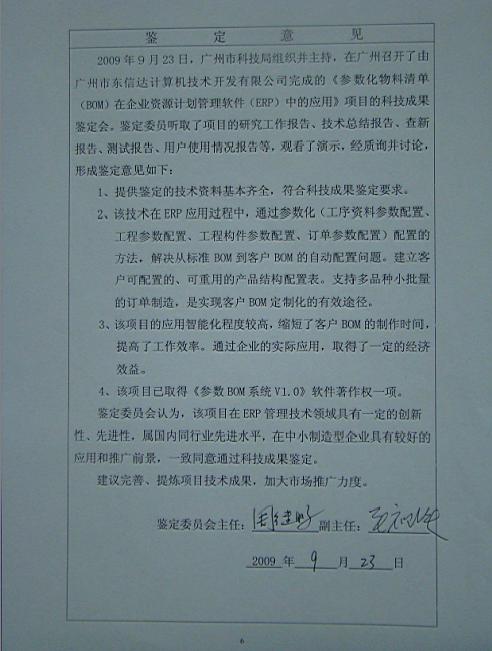 鉴定意见
2009年9月23日，广州市科技局组织并主持，在广州召开了由
广州市东信达计算机技术开发有限公司完成的《参数化物料清单
（BOM）在企业资源计划管理软件（ERP）中的应用》项目的科技成果
鉴定会。鉴定委员听取了项目的研究工作报告、技术总结报告、查新
报告、测试报告、用户使用情况报告等，观看了演示，经质询并讨论，
形成鉴定意见如下：
1、提供鉴定的技术资料基本齐全，符合科技成果鉴定要求。
2、该技术在ERP应用过程中，通过参数化（工序资料参数配置、
工程参数配置、工程构件参数配置、订单参数配置）配置的
方法，解决从标准BOM到客户BOM的自动配置问题。建立客
户可配置的、可重用的产品结构配置表。支持多品种小批量
的订单制造，是实现客户BOM定制化的有效途径。
3、该项目的应用智能化程度较高，缩短了客户BOM的制作时间，
提高了工作效率。通过企业的实际应用，取得了一定的经济
效益。
4、该项目已取得《参数BOM系统V1.0》软件著作权一项。
鉴定委员会认为，该项目在ERP管理技术领域具有一定的创新
性、先进性，属国内同行业先进水平，在中小制造型企业具有较好的
应用和推广前景，一致同意通过科技成果鉴定。
建议完善、提炼项目技术成果，加大市场推广力度。
鉴定委员会主任： 副主任：
2009年9月23日
6